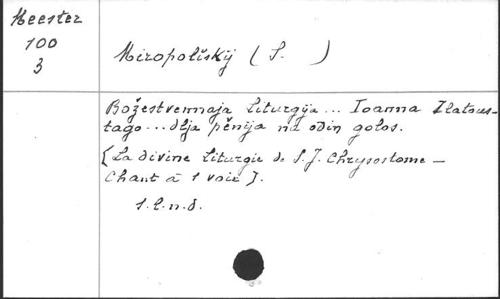 Meester
100
3
Miropolĭskij ( S. )
Božestvennaja liturgija... Ioanna Zlatous-
tago... dlja pěnija na odin golos.
[La divine liturgie de S. J. Chrysostome —
Chant à 1 voix].
s.l.n.d.